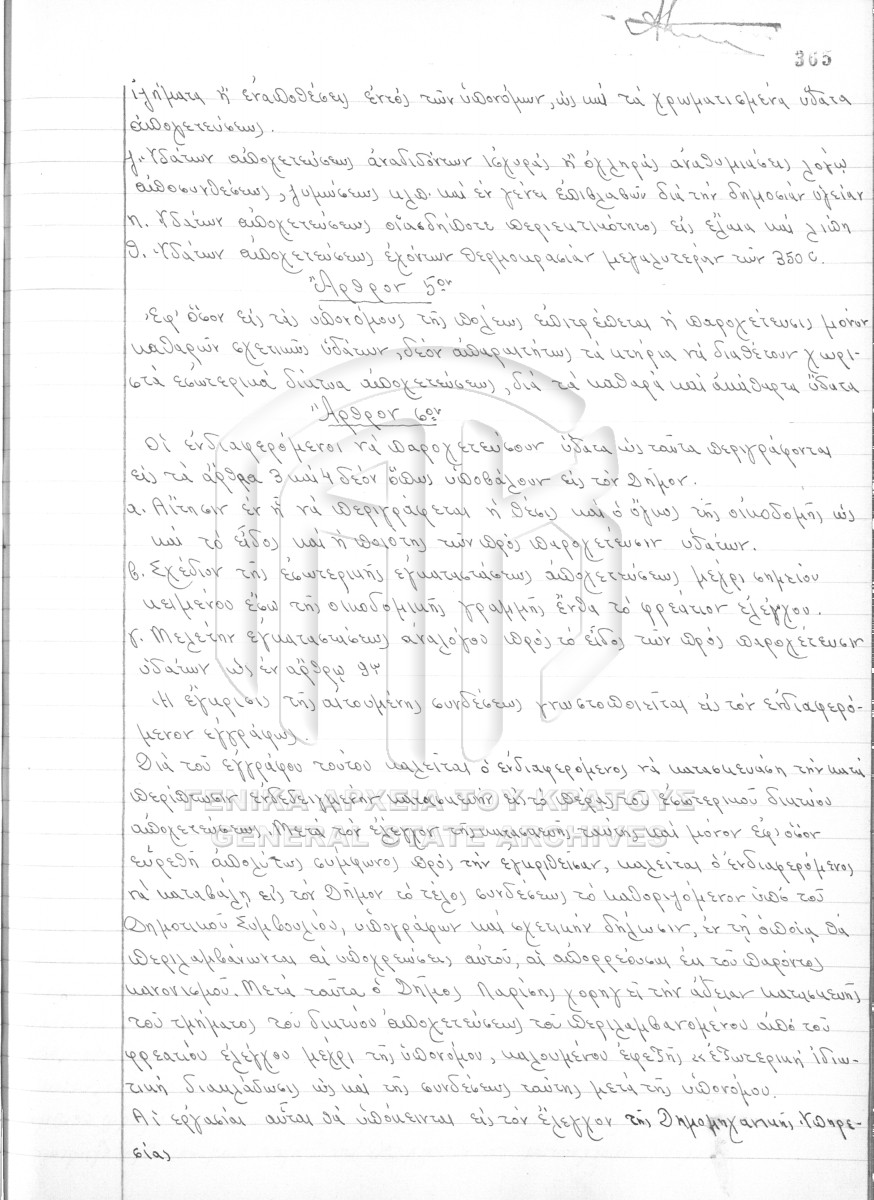 365
ἱζήματα ἤ ἐναποθέσεις ἐντός τῶν ὑπονόμων, ὡς καί τά χρωματισμένα ὕδατα
ἀποχετεύσεως.
ζ. Ὑδάτων ἀποχετεύσεως ἀναδιδόντων ἰσχυράς ἤ ὀχληράς ἀναθυμιάσεις λόγῳ
ἀποσυνθέσεως, ζυμώσεως κλπ. καί ἐν γένει ἐπιβλαβῶν διά τήν δημοσίαν ὑγείαν
η. Ὑδάτων ἀποχετεύσεως οἱασδήποτε περιεκτικότητος εἰς ἔλαια καί λίπη
θ. Ὑδάτων ἀποχετεύσεως ἐχόντων θερμοκρασίαν μεγαλυτέραν τῶν 350 C.
Ἄρθρον 5ον
Ἐφ' ὅσον εἰς τάς ὑπονόμους τῆς πόλεως ἐπιτρέπεται ἡ παροχέτευσις μόνον
καθαρῶν σχετικῶς ὑδάτων, δέον ἀπαραιτήτως τά κτήρια νά διαθέτουν χωρι-
στά ἐσωτερικά δίκτυα ἀποχετεύσεως, διά τά καθαρά καί ἀκάθαρτα ὕδατα
Ἄρθρον 6ον
Οἱ ἐνδιαφερόμενοι νά παροχετεύσουν ὕδατα ὡς ταῦτα περιγράφονται
εἰς τά ἄρθρα 3 καί 4 δέον ὅπως ὑποβάλουν εἰς τόν Δῆμον.
α. Αἴτησιν ἐν ᾗ νά περιγράφεται ἡ θέσις καί ὁ ὄγκος τῆς οἰκοδομῆς ὡς
καί τό εἶδος καί ἡ ποιότης τῶν πρός παροχέτευσιν ὑδάτων.
β. Σχέδιον τῆς ἐσωτερικῆς ἐγκαταστάσεως ἀποχετεύσεως μέχρι σημείου
κειμένου ἔξω τῆς οἰκοδομικῆς γραμμῆς ἔνθα τό φρεάτιον ἐλέγχου.
γ. Μελέτην ἐγκαταστάσεως ἀναλόγου πρός τό εἶδος τῶν πρός παροχέτευσιν
ὑδάτων ὡς ἐν ἄρθρῳ 9
Ἡ ἔγκρισις τῆς αἰτουμένης συνδέσεως γνωστοποιεῖται εἰς τόν ἐνδιαφερό-
μενον ἐγγράφως.
Διά τοῦ ἐγγράφου τούτου καλεῖται ὁ ἐνδιαφερόμενος νά κατασκευάση τήν κατά
περίπτωσιν ἐνδεδειγμένην κατασκευήν εἰς τό πέρας τοῦ ἐσωτερικοῦ δικτύου
ἀποχετεύσεως. Μετά τόν ἔλεγχον τῆς κατασκευῆς ταύτης καί μόνον ἐφ' ὅσον
εὑρεθῆ ἀπολύτως σύμφωνος πρός τήν ἐγκριθεῖσαν, καλεῖται ὁ ἐνδιαφερόμενος
νά καταβάλη εἰς τόν Δῆμον τό τέλος συνδέσεως τό καθοριζόμενον ὑπό τοῦ
Δημοτικοῦ Συμβουλίου, ὑπογράφων καί σχετικήν δήλωσιν, ἐν τῇ ὁποίᾳ θά
περιλαμβάνωνται αἱ ὑποχρεώσεις αὐτοῦ, αἱ ἀπορρέουσαι ἐκ τοῦ παρόντος
κανονισμοῦ. Μετά ταῦτα ὁ Δῆμος Λαρίσης χορηγεῖ τήν ἄδειαν κατασκευῆς
τοῦ τμήματος τοῦ δικτύου ἀποχετεύσεως τοῦ περιλαμβανομένου ἀπό τοῦ
φρεατίου ἐλέγχου μέχρι τῆς ὑπονόμου, καλουμένου ἐφεξῆς «ἐξωτερική ἰδιω-
τική διακλάδωσις ὡς καί τῆς συνδέσεως ταύτης μετά τῆς ὑπονόμου.
Αἱ ἐργασίαι αὗται θά ὑπόκεινται εἰς τόν ἔλεγχον τῆς Δημομηχανικῆς Ὑπηρε-
σίας
ΓΕΝΙΚΑ ΑΡΧΕΙΑ ΤΟΥ ΚΡΑΤΟΥΣ
GENERAL STATE ARCHIVES